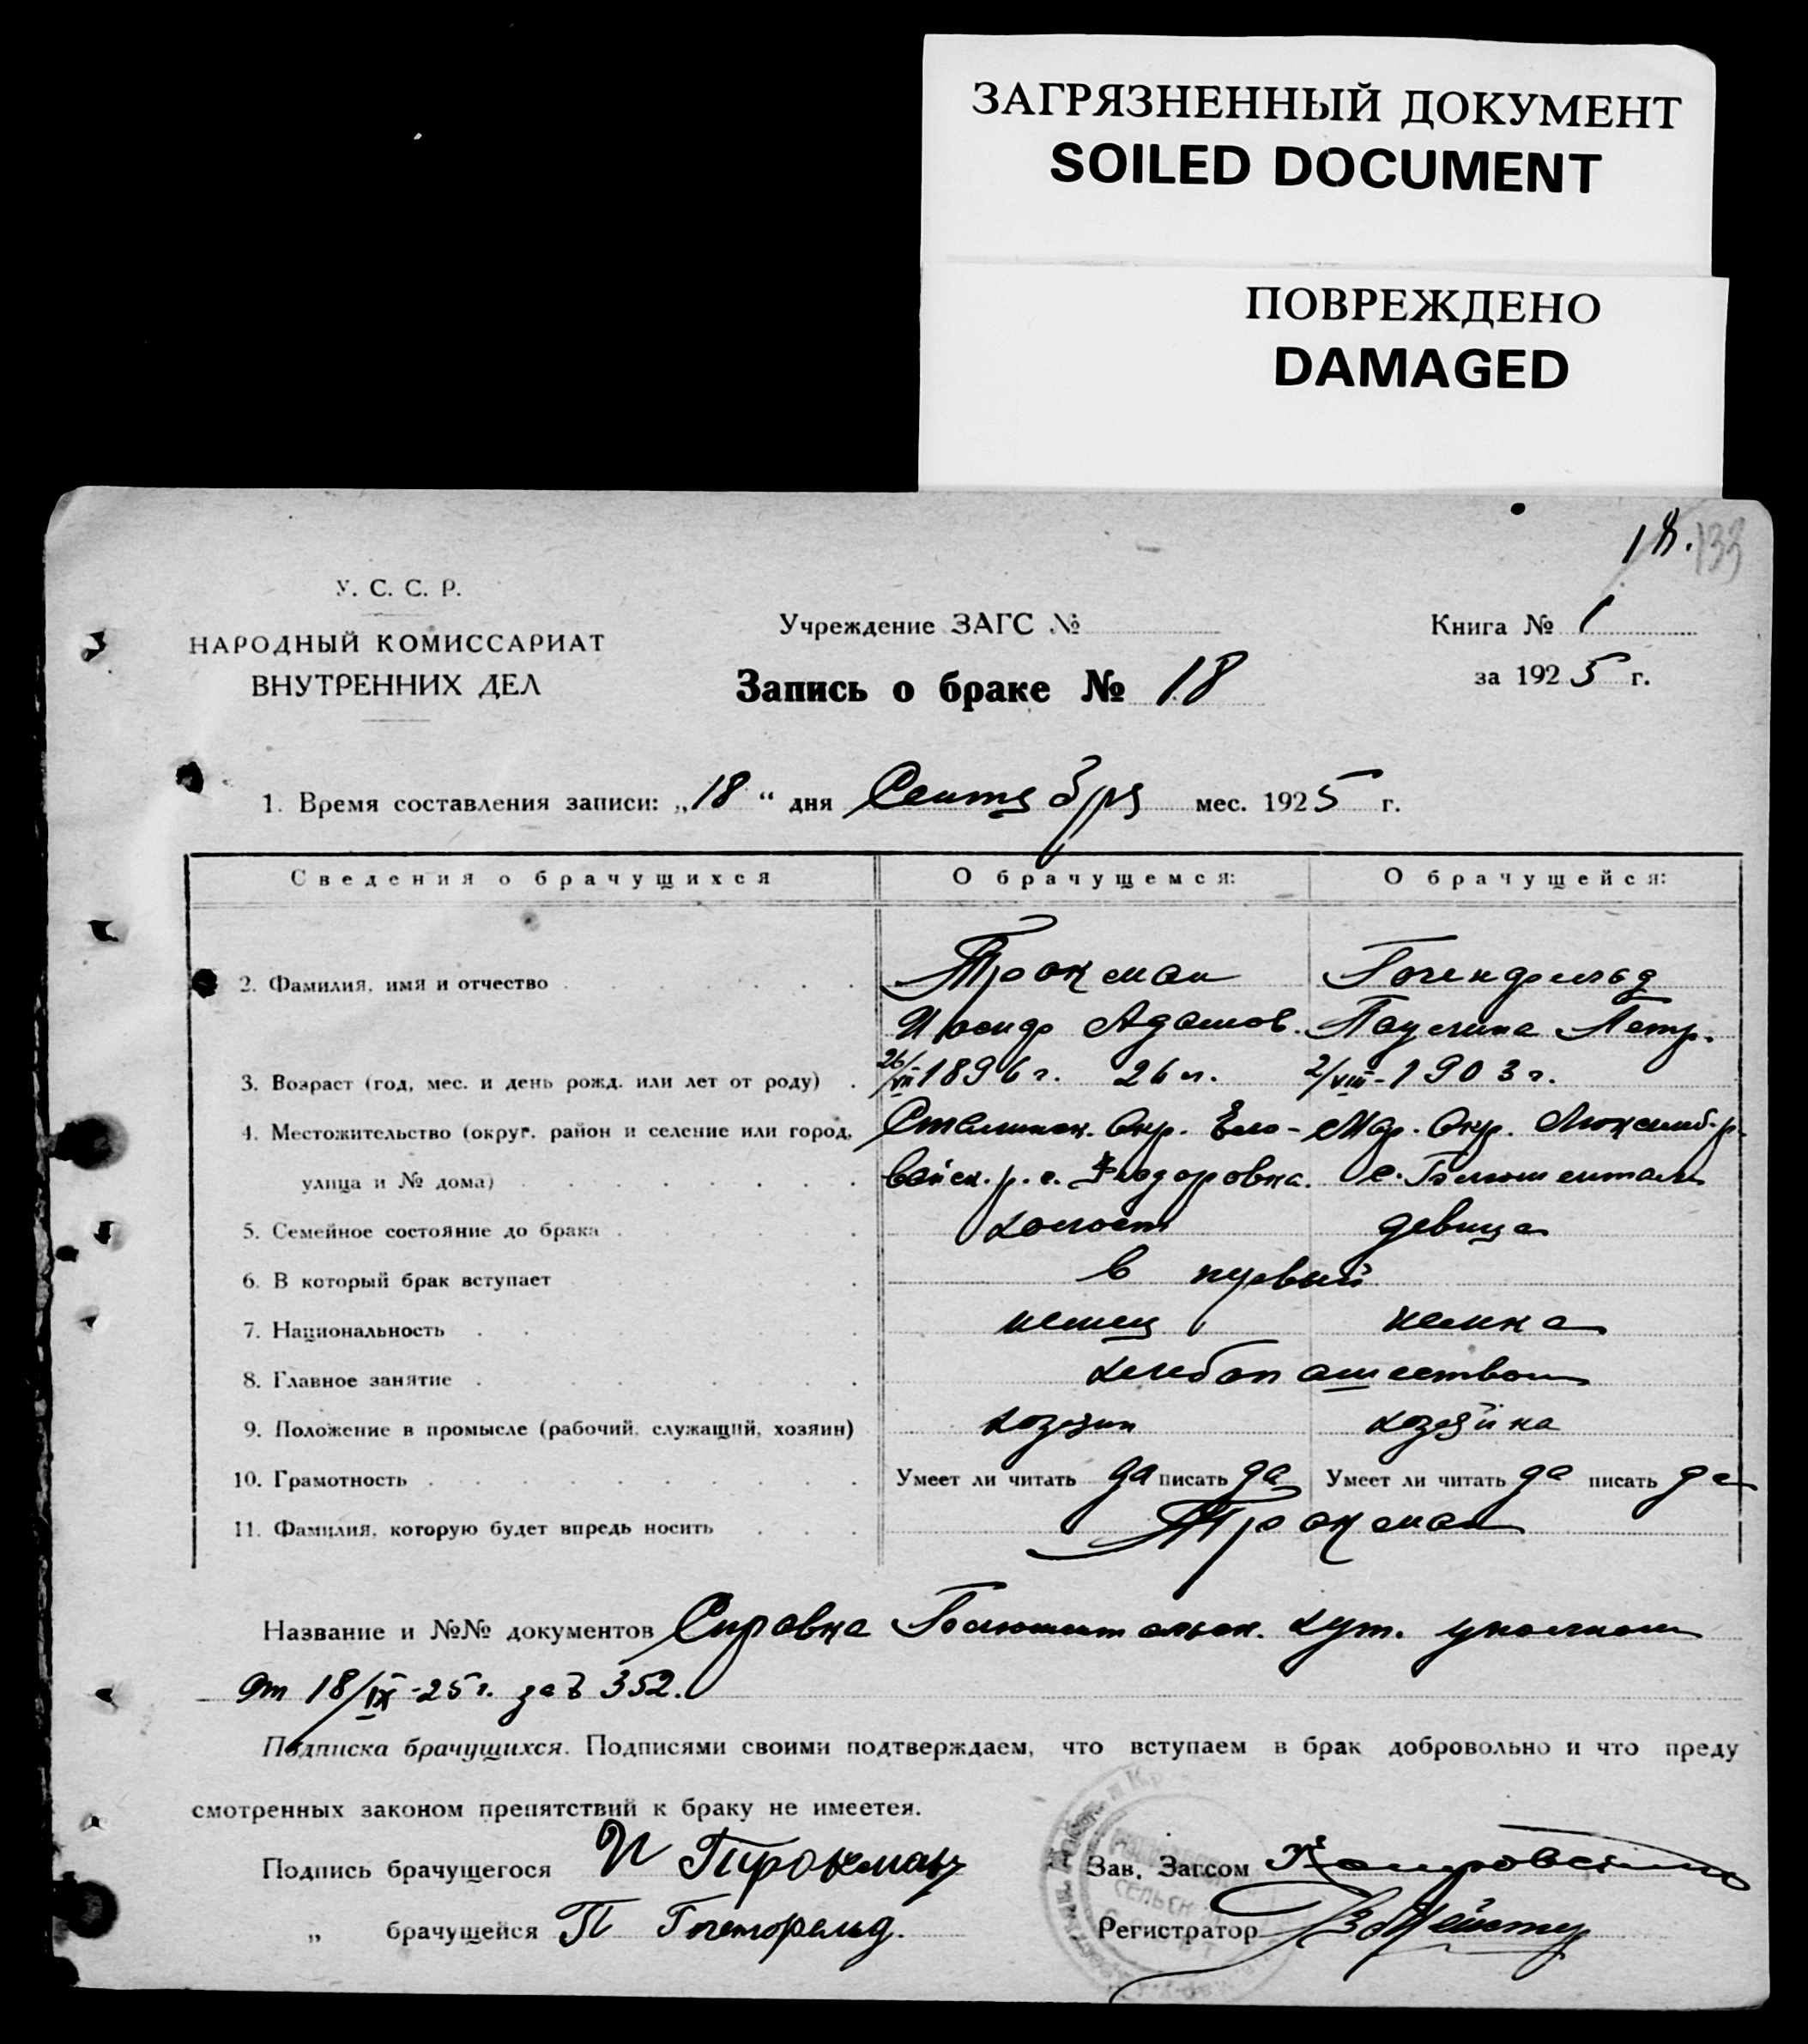 ЗАГРЯЗНЕННЫЙ ДОКУМЕНТ
SOILED DOCUMENT
ПОВРЕЖДЕНО
DAMAGED
18. 133
У. С. С. Р.
НАРОДНЫЙ КОМИССАРИАТ
ВНУТРЕННИХ ДЕЛ
Учреждение ЗАГС №
Запись о браке № 18
Книга № 1
за 1925 г.
1. Время составления записи: „18“ дня Сентября мес. 1925 г.
Сведения о брачущихся О брачущемся: О брачущейся:
2. Фамилия, имя и отчество Трокман Гогенфельд
Иосиф Адамов. Паулина Петр.
3. Возраст (год, мес. и день рожд. или лет от роду) 26/VII 1896 г. 26 л. 2/VIII-1903 г.
4. Местожительство (округ, район и селение или город, Сталинск. Окр. Мар. Окр. Люксемб. р.
улица и № дома) р. с. Федоровка. с.
5. Семейное состояние до брака холост девица
6. В который брак вступает в первый
7. Национальность немец немка
8. Главное занятие хлебопашеством
9. Положение в промысле (рабочий, служащий, хозяин) хозяин хозяйка
10. Грамотность Умеет ли читать да писать да Умеет ли читать да писать да
11. Фамилия, которую будет впредь носить Трокман
Название и №№ документов Справка
от 18/IX-25 г. за № 352.
Подписка брачущихся. Подписями своими подтверждаем, что вступаем в брак добровольно и что преду
смотренных законом препятствий к браку не имеется.
Подпись брачущегося И Трокман
„ брачущейся П Гогенфельд.
Зав. Загсом
Регистратор